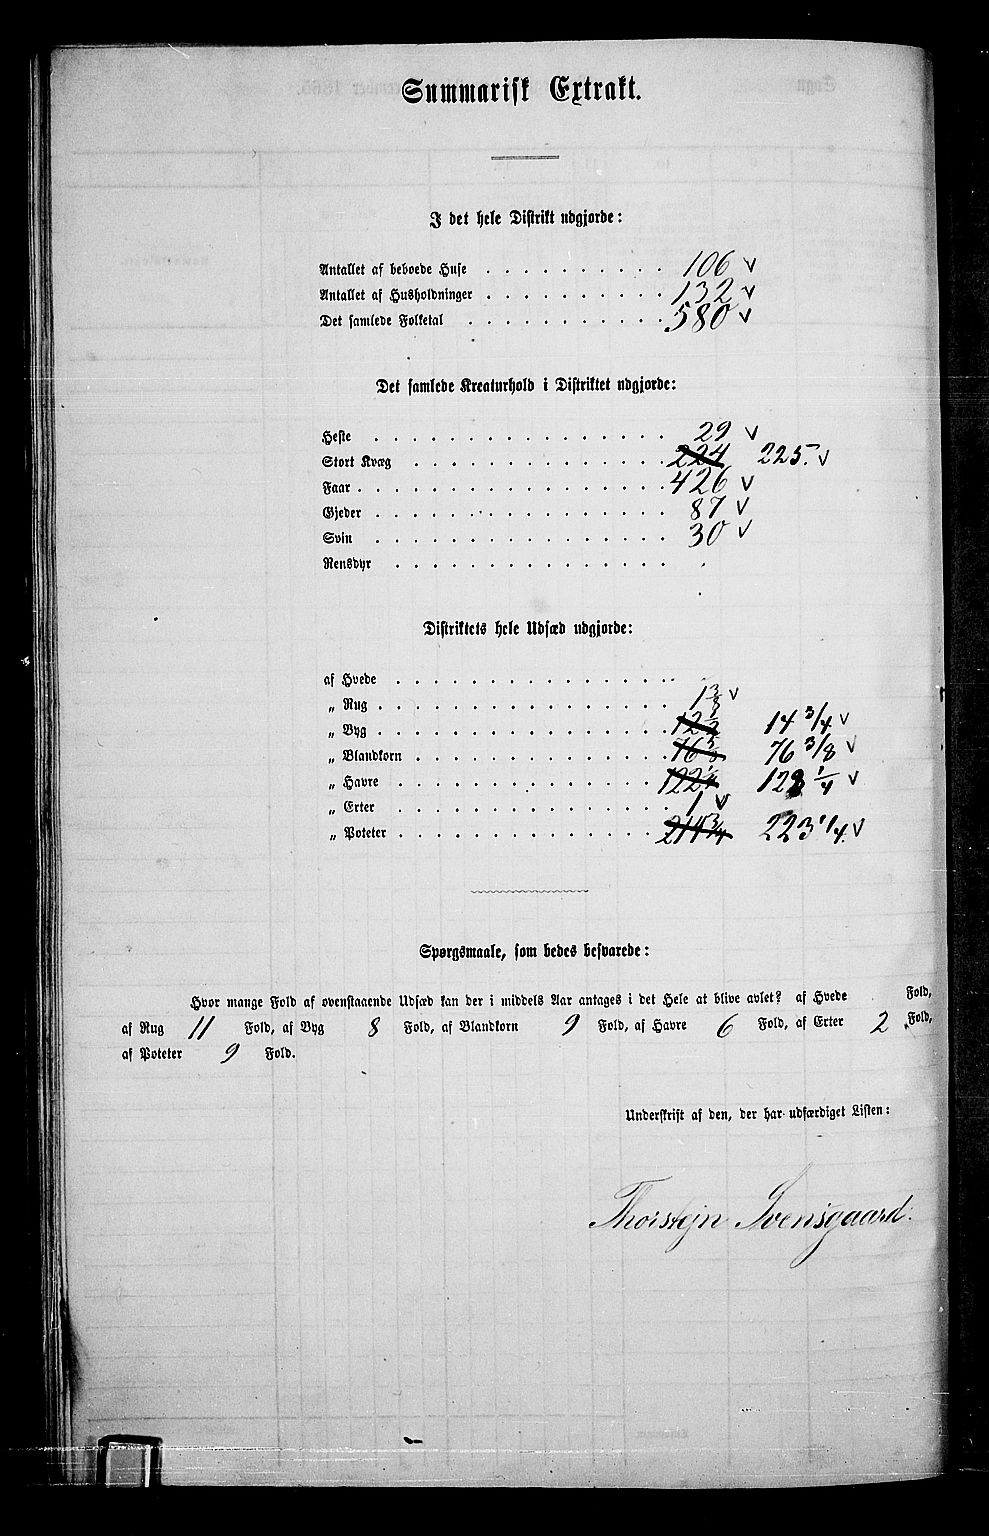 Summarisk Extrakt.
I det hele Distrikt udgjorde:
Antallet af beboede Huse . . . . . . . . . . 106 v
Antallet af Husholdninger . . . . . . . . . . 132 v
Det samlede Folketal . . . . . . . . . . 580 v
Det samlede Kreaturhold i Distriktet udgjorde:
Heste . . . . . . . . . . 29 v
Stort Kvæg . . . . . . . . . . 224 225. v
Faar . . . . . . . . . . 426 v
Gjeder . . . . . . . . . . 87 v
Svin . . . . . . . . . . 30 v
Rensdyr . . . . . . . . . .
Distriktets hele Udsæd udgjorde:
af Hvede . . . . . . . . . .
„ Rug . . . . . . . . . . 1 3/8 v
„ Byg . . . . . . . . . . 12 1/2 14 3/4 v
„ Blandkorn . . . . . . . . . . 76 76 3/8 v
„ Havre . . . . . . . . . . 122 1/4 1/4 v
„ Erter . . . . . . . . . . 1 v
„ Poteter . . . . . . . . . . 3/4 223 1/4. v
Spørgsmaale, som bedes besvarede:
Hvor mange Fold af ovenstaaende Udsæd kan der i middels Aar antages i det Hele at blive avlet? af Hvede Fold,
af Rug 11 Fold, af Byg 8 Fold, af Blandkorn 9 Fold, af Havre 6 Fold, af Erter 2 Fold,
af Poteter 9 Fold.
Underskrift af den, der har udfærdiget Listen:
Thorstejn Svensgaard.